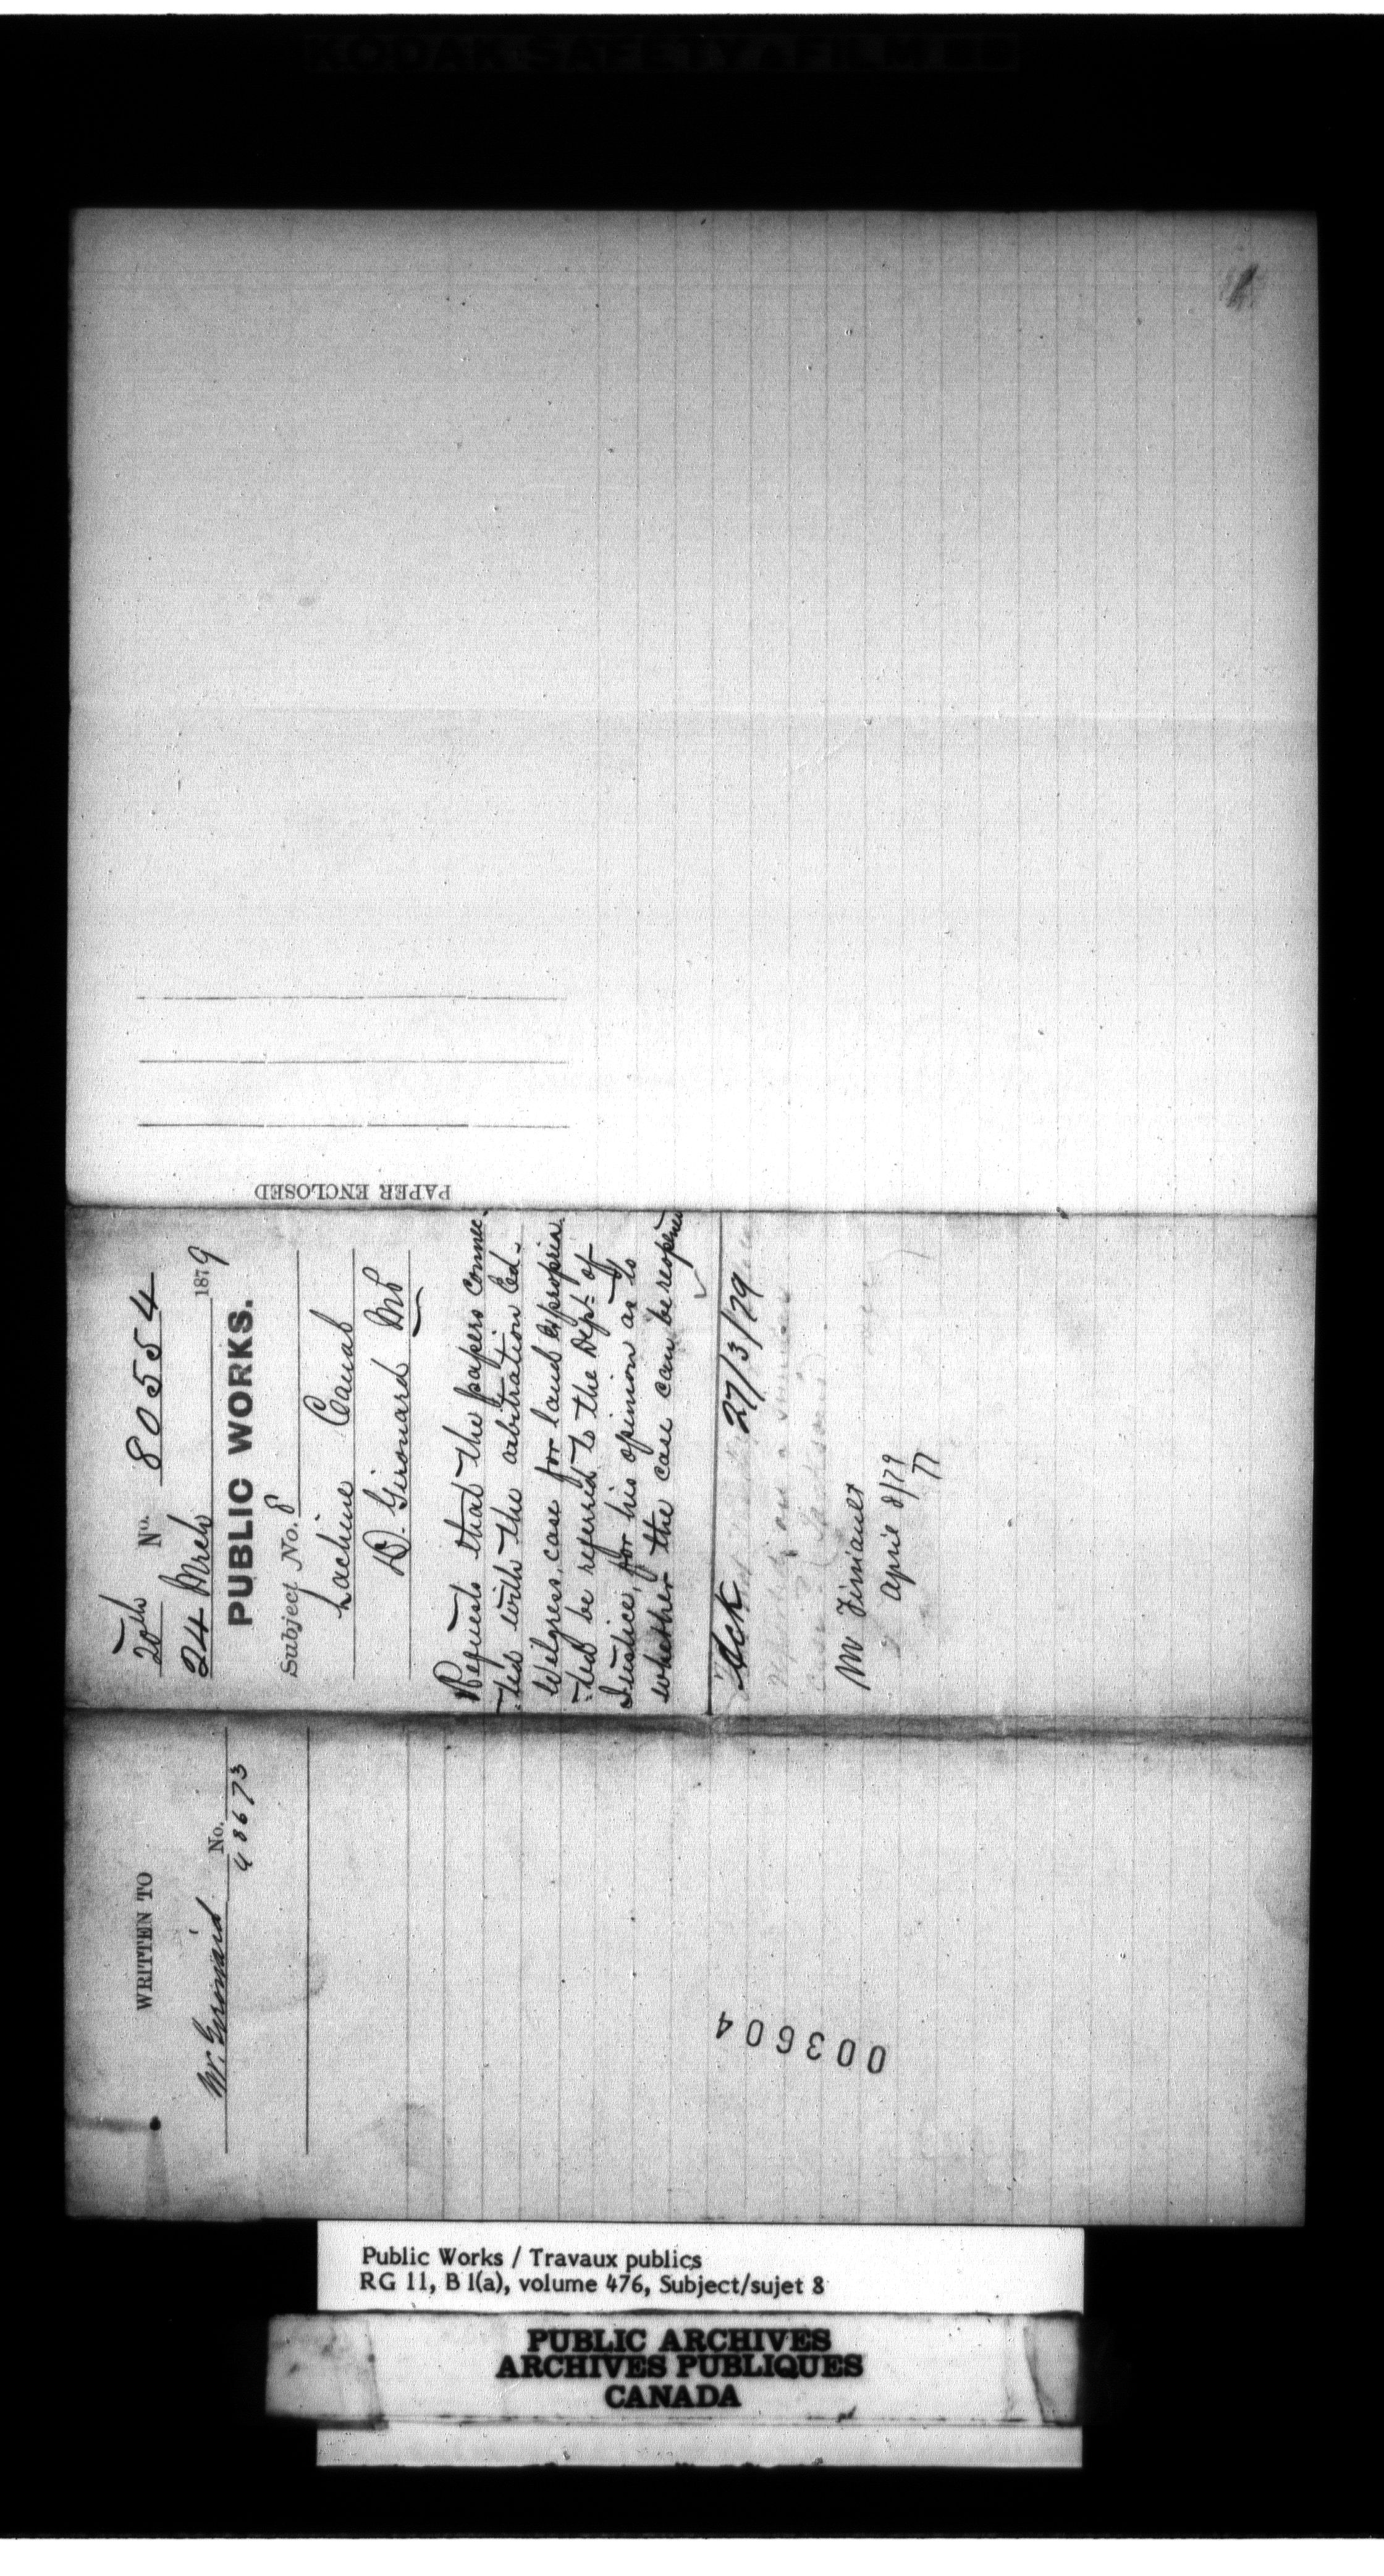 KODAK SAFETY FILM
20th No. 80554
24 Mrch 1879
PUBLIC WORKS.
Subject No. 8
Lachine Canal
D. Girouard MP
Requests that the papers connec-
-ted with the arbitration Ed.
Wilgress, case for land expropria
-ted be referred to the Dept: of
Justice, for his opinion as to
whether the case can be reopened
Ack 27/3/79
Mr
April 8/79
77
PAPER ENCLOSED
WRITTEN TO
No.
Mr. Girouard 48673
003604
Public Works / Travaux publics
RG 11, B 1(a), volume 476, Subject/sujet 8
PUBLIC ARCHIVES
ARCHIVES PUBLIQUES
CANADA